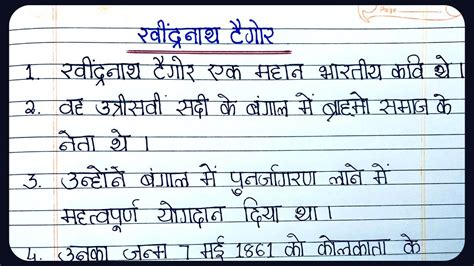 रवींद्रनाथ टैगोर
1. रवींद्रनाथ टैगोर एक महान भारतीय कवि थे ।
२. वह उन्नीसवीं सदी के बंगाल में ब्राह्मो समाज के
नेता थे ।
3. उन्होंने बंगाल में पुनर्जागरण लाने में
महत्वपूर्ण योगदान दिया था ।
4. उनका जन्म 7 मई 1861 को कोलकाता के